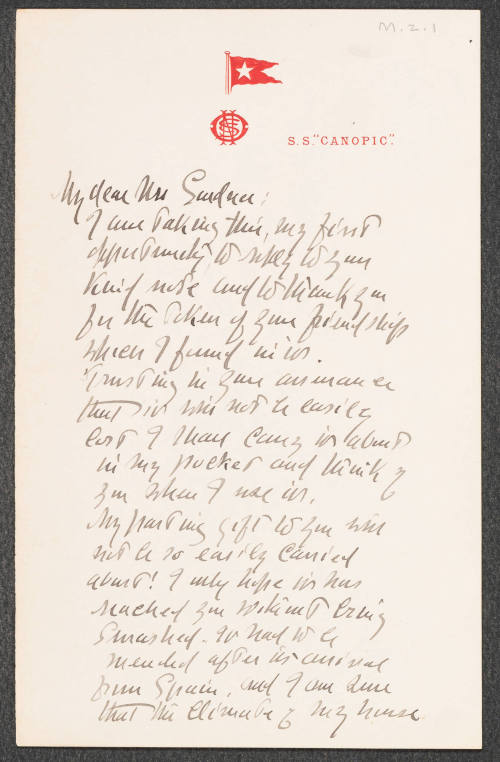 M.2.1
S.S. "CANOPIC".
My dear Mrs Gardner:
I am taking this, my first
opportunity to reply to your
kind note and to thank you
for the token of your friendship
which I found in it.
Trusting in your assurance
that it will not be easily
lost I shall carry it about
in my pocket and think of
you when I use it.
My parting gift to you will
not be so easily carried
about! I only hope it has
reached you without being
smashed. It had to be
mended after its arrival
from Spain, and I am sure
that the climate of my house